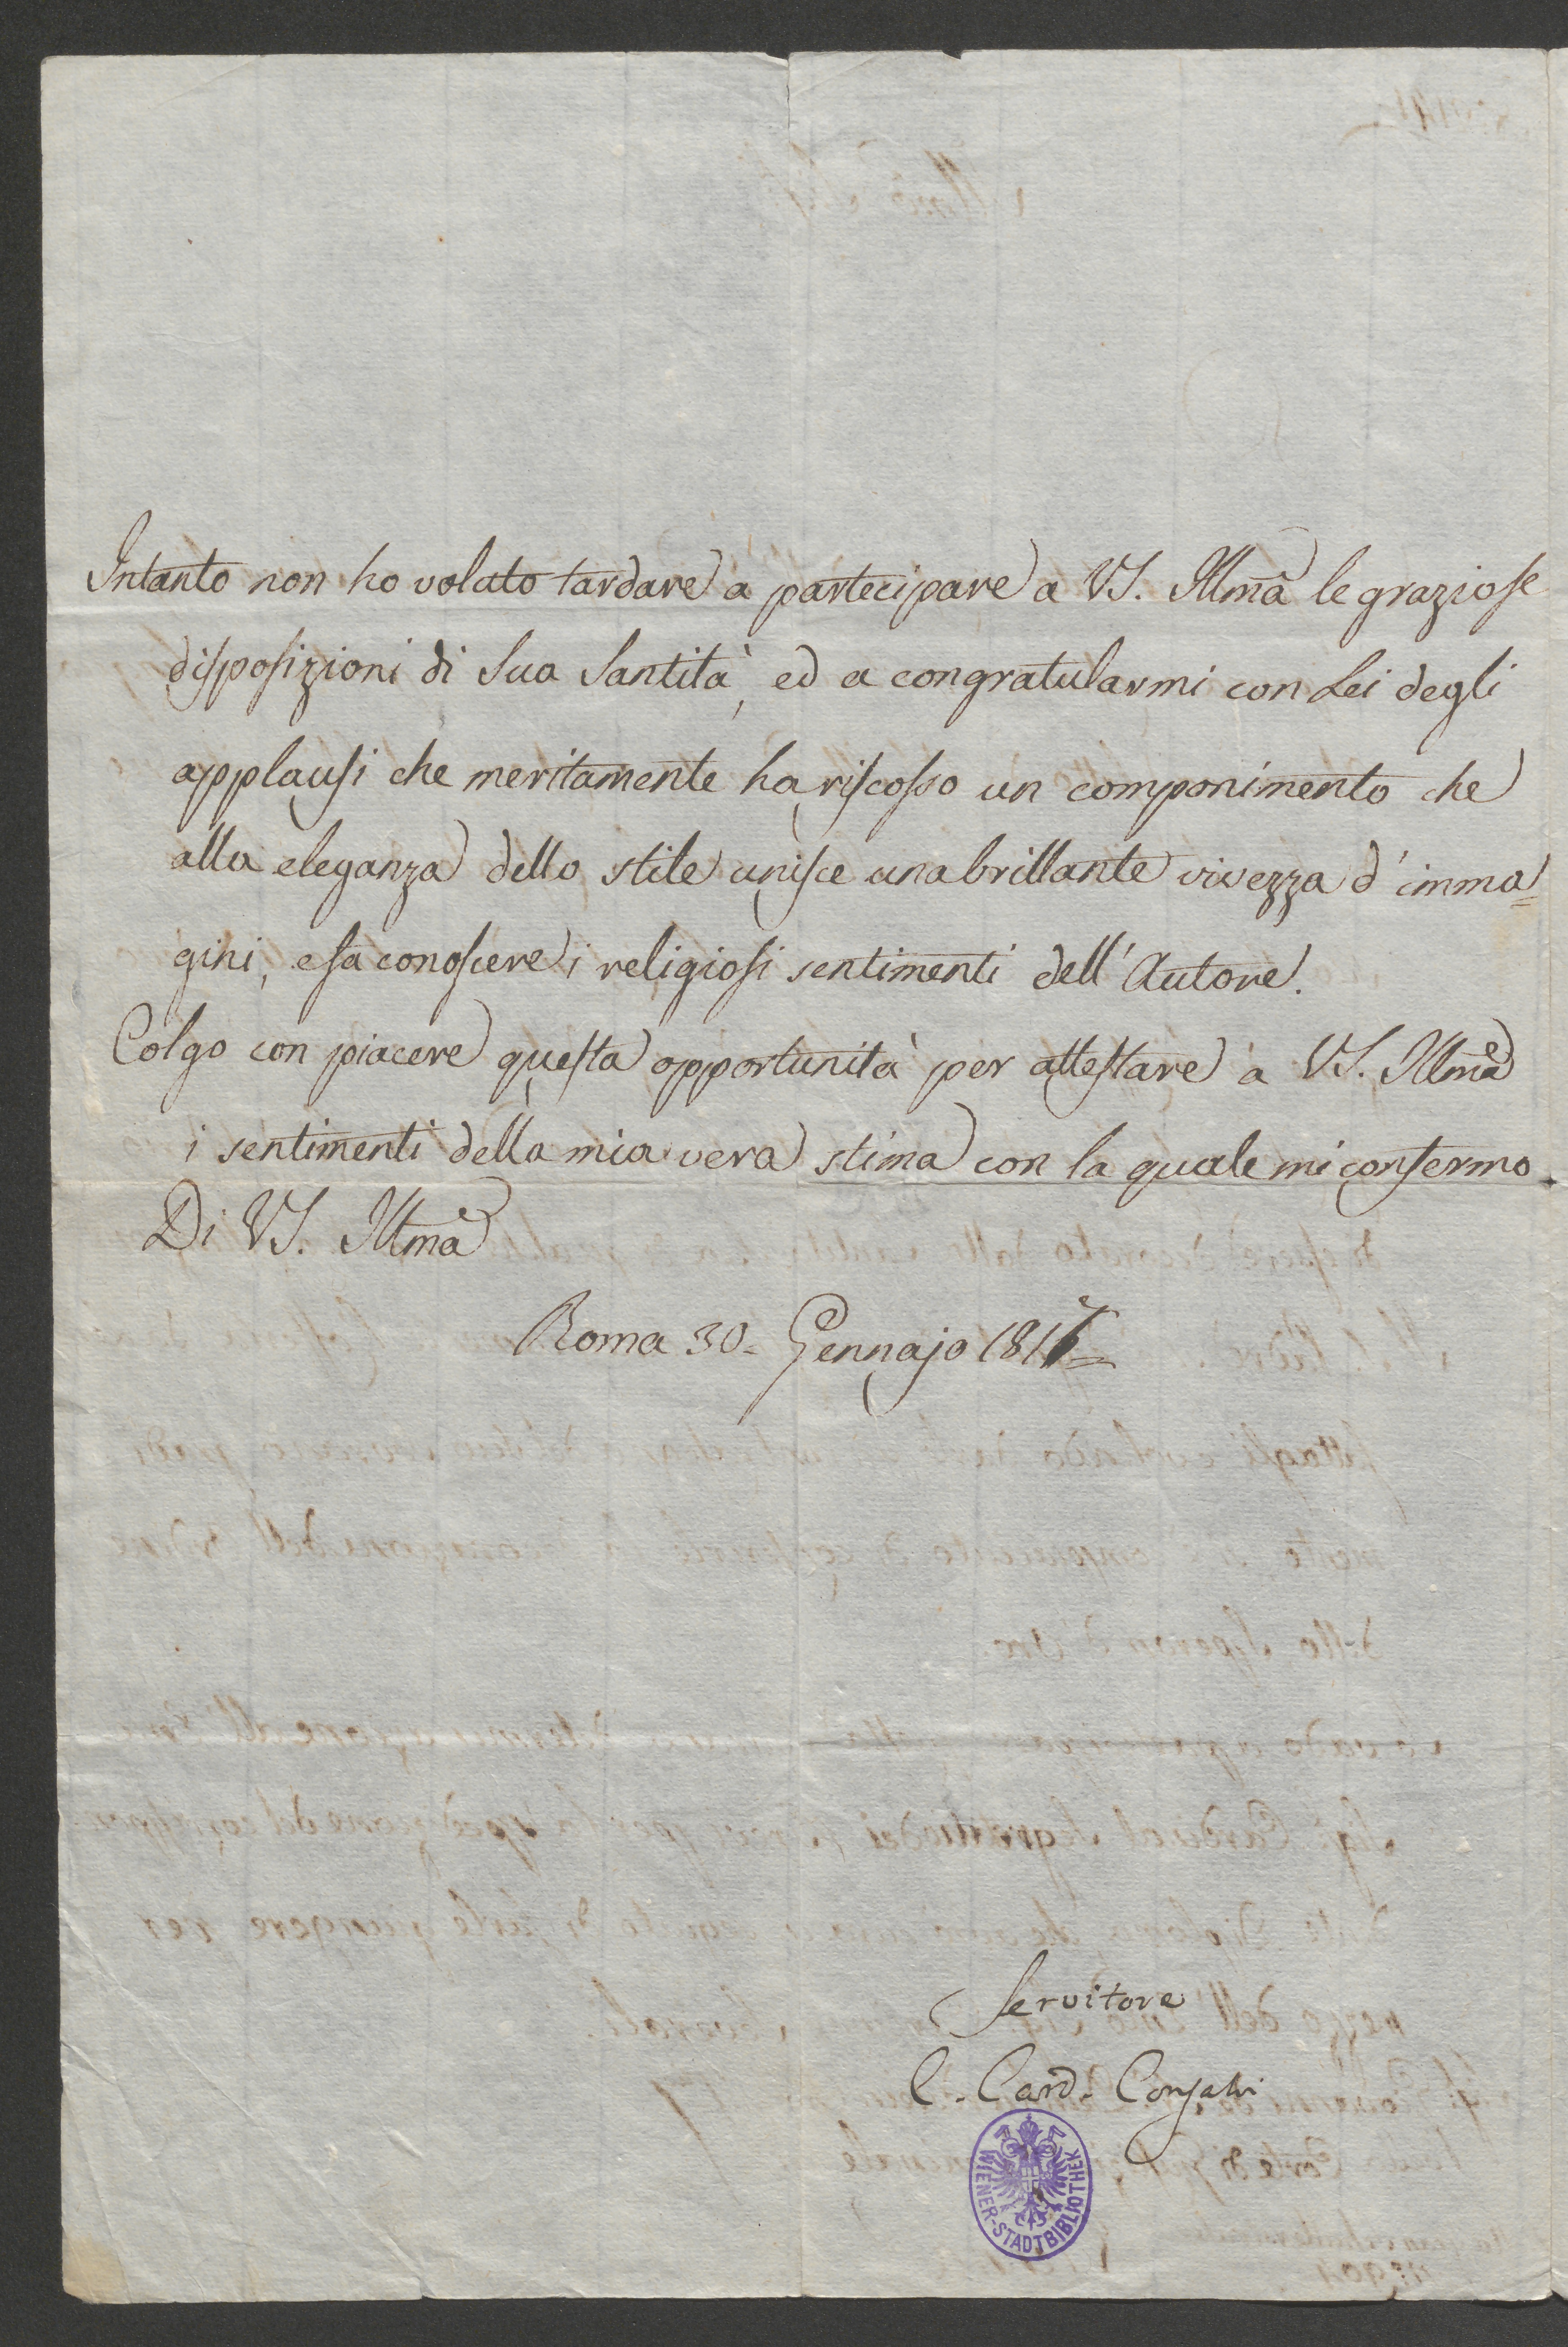 Intanto non ho voluto tardare a partecipare a VS. Illma le graziose
disposizioni di Sua Santità, ed a congratularmi con Lei degli
applausi che meritamente ha riscosso un componimento che
alla eleganza dello stile unisce una brillante vivezza d'imma=
gini, e fa conoscere i religiosi sentimenti dell'Autore.
Colgo con piacere questa opportunità per attestare a VS. Illma
i sentimenti della mia vera stima con la quale mi confermo.
Di VS. Illma
Roma 30. Gennajo 1817
Servitore
C. Card. Consalvi
WIENER-STADTBIBLIOTHEK